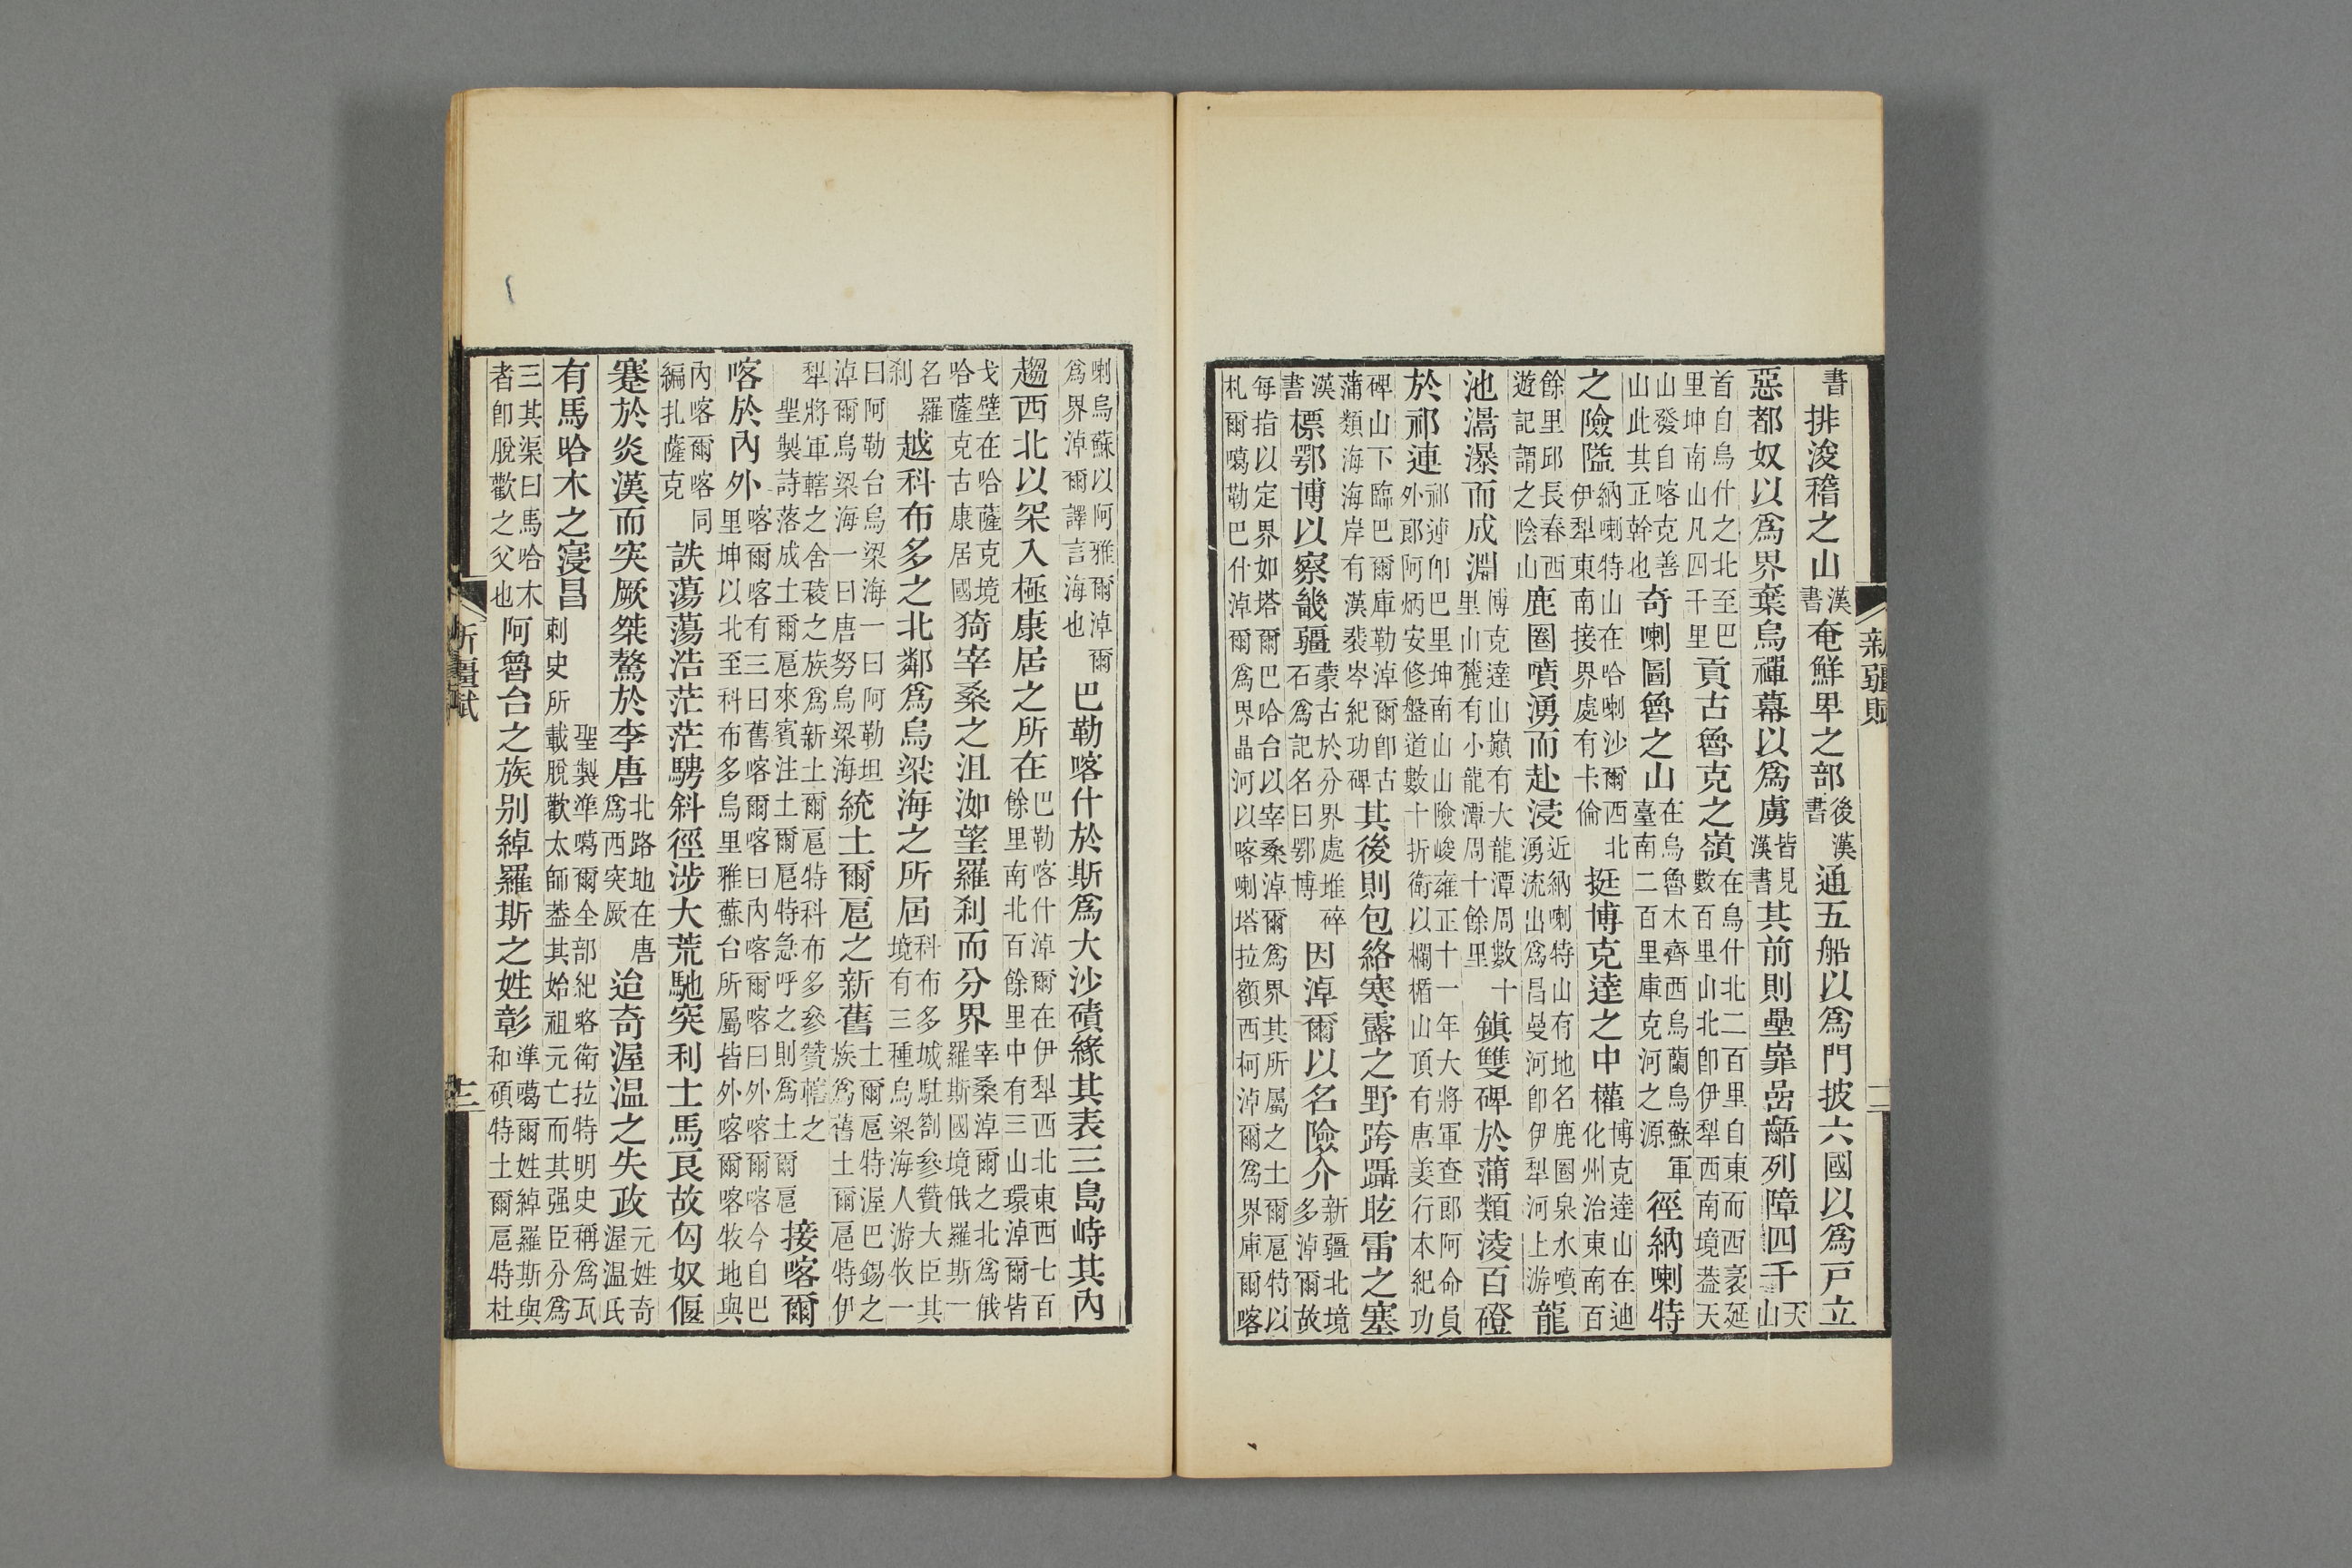 書排浚稽之山漢書奄鮮卑之部後漢書通五船以為門披六國以為戶立
惡都奴以為界棄烏禪幕以為虜皆見漢書其前則壘嶵嵒齬列障四千天山
首自烏什之北至巴里坤南山凡四千里貢古魯克之嶺在烏什北二百里自東而西豪延數百里山北卽伊犁西南境葢天
山發自喀克善山此其正幹也奇喇圖魯之山在烏魯木齊西烏蘭烏蘇軍臺南二百里庫克河之源徑納喇特
之險隘納喇特山在哈喇沙爾西北伊犁東南接界處有卡倫挺博克達之中權博克達山在迪化州治東南百
餘里邱長春西遊記謂之陰山鹿圈噴湧而赴浸近納喇特山有地名鹿圈泉水噴湧流出為昌曼河卽伊犁河上游龍
池濭瀑而成淵博克達山巔有大龍潭周數十里山麓有小龍潭周十餘里鎮雙碑於蒲類淩百磴
於祁連祁連卽巴里坤南山山險峻雍正十一年大將軍查郎阿命員外郎阿炳安修盤道數十折衛以欄楯山頂有唐姜行本紀功
碑山下臨巴爾庫勒淖爾卽古蒲類海海岸有漢裴岑紀功碑其後則包絡寒露之野跨躡眩雷之塞
漢書標鄂博以察畿疆蒙古於分界處堆碎石為記名曰鄂博因淖爾以名險介新疆北境多淖爾故
每指以定界如塔爾巴哈台以宰桑淖爾為界其所屬之土爾扈特以札爾噶勒巴什淖爾為界晶河以喀喇塔拉額西柯淖爾為界庫爾喀
新疆賦
二
喇烏蘇以阿雅爾淖爾為界淖爾譯言海也巴勒喀什於斯為大沙磧緣其表三島峙其內
趨西北以罙入極康居之所在巴勒喀什淖爾在伊犁西北東西七百餘里南北百餘里中有三山環淖爾皆
戈壁在哈薩克境哈薩克古康居國猗宰桑之沮洳望羅刹而分界宰桑淖爾之北為俄羅斯國境俄羅斯一
名羅刹越科布多之北鄰為烏梁海之所屆科布多城駐劄參贊大臣其境有三種烏梁海人游牧一
曰阿勒台烏梁海一曰阿勒坦淖爾烏梁海一曰唐努烏梁海統土爾扈之新舊土爾扈特渥巴錫之族為舊土爾扈特伊
犁將軍轄之舍稜之族為新土爾扈特科布多參贊轄之聖製詩落成土爾扈來賓注土爾扈特急呼之則為土爾扈接喀爾
喀於內外喀爾喀有三曰舊喀爾喀曰內喀爾喀曰外喀爾喀今自巴里坤以北至科布多烏里雅蘇台所屬皆外喀爾喀牧地與
內喀爾喀同編扎薩克詄蕩蕩浩茫茫騁斜徑涉大荒馳突利士馬良故匈奴偃
蹇於炎漢而突厥桀驁於李唐北路地在唐為西突厥迨奇渥温之失政元姓奇渥温氏
有馬哈木之寖昌聖製準噶爾全部紀略衛拉特明史稱為瓦剌史所載脫歡太師葢其始祖元亡而其强臣分為
三其渠曰馬哈木者卽脫歡之父也阿魯台之族别綽羅斯之姓彰準噶爾姓綽羅斯與和碩特土爾扈特杜
新疆賦
三